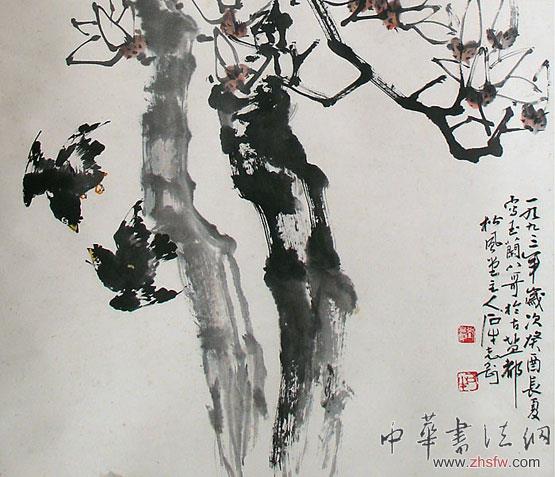 一九九三年歲次癸酉長夏
寫玉蘭八哥於古盐都
松風堂主人石牛
中華書法網
www.zhsfw.com